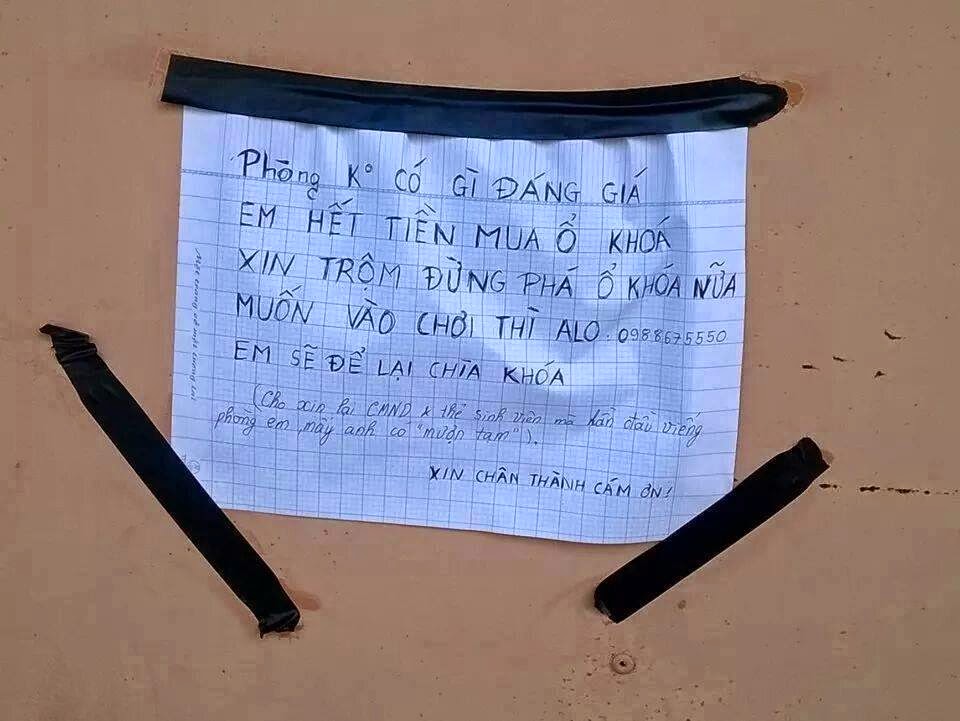 Phòng Kº CÓ GÌ ĐÁNG GIÁ
EM HẾT TIỀN MUA Ổ KHOÁ
XIN TRỘM ĐỪNG PHÁ Ổ KHÓA NỮA
MUỐN VÀO CHƠI THÌ ALO: 0988675550
EM SẼ ĐỂ LẠI CHÌA KHÓA
(Cho xin lại CMND & thẻ sinh viên mà lần đầu viếng
phòng em mấy anh có "mượn tạm").
XIN CHÂN THÀNH CÁM ƠN!